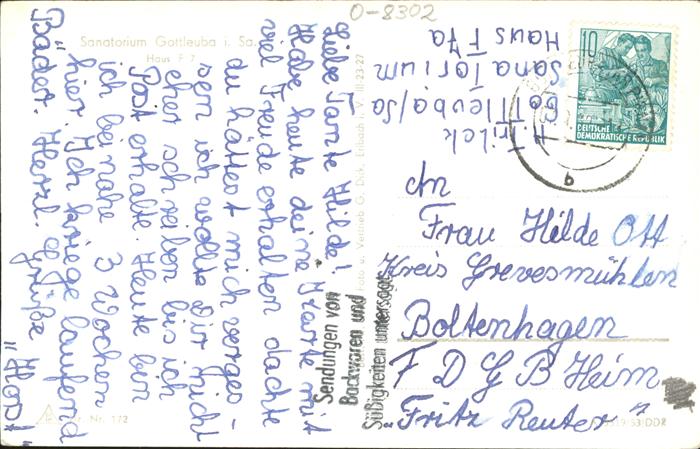 O-8302
Sanatorium Gottleuba i. Sa.
Haus F 7
Liebe Tante Hilde!
Habe heute deine Karte mit
viel Freude erhalten dachte
du hättest mich verges-
sen ich wollte Dir nicht
eher schreiben bis ich
Post erhalte. Heute bin
ich beinahe 3 Wochen
hier. Ich kriege laufend
Bäder. Herzl. Grüße
Foto u. Vertrieb G. Dick, Erlbach i. V. III-23-27
Sendungen von
Backwaren und
Süßigkeiten untersagt
H.
Gottleuba/Sa
Sanatorium
Haus F7a
10
DEUTSCHE
DEMOKRATISCHE REPUBLIK
b
An
Frau Hilde Ott
Kreis Grevesmühlen
Boltenhagen
F D G B Heim
„Fritz Reuter"
Nr. 172
DDR